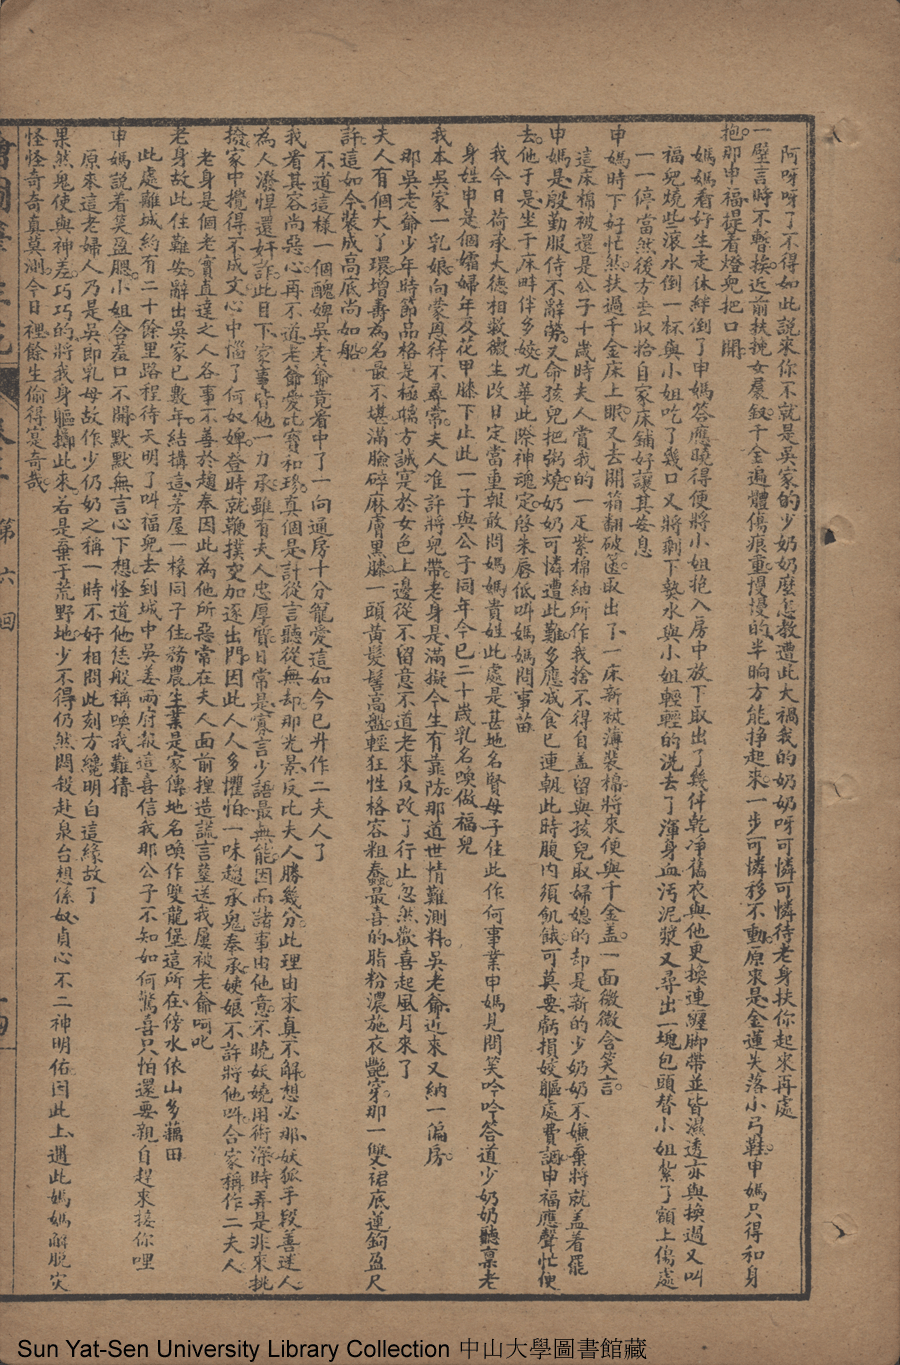 阿呀呀了不得如此說來你不就是吳家的少奶奶麼怎教遭此大禍我的奶奶呀可憐可憐待老身扶你起來再處
一壁言時不暫挨近前扶挽女羣釵千金遍體傷痕重慢慢的半晌方能掙起來一步可憐移不動原來是金蓮失落小弓鞋申媽只得和身
抱那申福提着燈兒把口開
媽媽看好生走休絆倒了申媽答應曉得便將小姐抱入房中放下取出了幾件乾淨舊衣與他更換連纏脚帶並皆濕透亦與換過又叫
福兒燒些滾水倒一杯與小姐吃了幾口又將剩下熱水與小姐輕輕的洗去了渾身血汚泥漿又尋出一塊包頭替小姐紮了額上傷處
一一停當然後方去収拾自家床鋪好讓其安息
申媽時下好忙然扶過千金床上眠又去開箱翻破篋取出了一床新被薄裝棉將來便與千金盖一面微微含笑言
這床棉被還是公子十歲時夫人賞我的一疋紫棉紬所作我捨不得自盖留與孩兒取婦媳的却是新的少奶奶不嫌棄將就盖着罷
申媽是殷勤服侍不辭勞又命孩兒把粥燒奶奶可憐遭此難多應减食已連朝此時腹内須飢餓可莫要虧損姣軀處費調申福應聲忙便
去他于是坐于床畔伴多姣九華此際神魂定啓朱唇低叫媽媽問事苗
我今日荷承大德相救微生改日定當重報敢問媽媽貴姓此處是甚地名賢母子住此作何事業申媽見問笑吟吟答道少奶奶聽稟老
身姓申是個孀婦年及花甲膝下止此一子與公子同年今已二十歲乳名喚做福兒
我本吳家一乳娘向蒙恩待不尋常夫人准許將兒帶老身是滿擬今生有靠防那道世情難測料吳老爺近來又納一偏房
那吳老爺少年時節品格是極端方誠寔於女色上邊從不留意不道老來反改了行止忽然歡喜起風月來了
夫人有個大丫環增壽為名最不堪滿臉碎麻膚黑膝一頭黃髮髻高盤輕狂性格容粗蠢最喜的脂粉濃施衣艷穿那一雙裙底蓮鈎盈尺
許這如今裝成高底尚如船
不道這樣一個醜婢吳老爺竟看中了一向通房十分寵愛這如今已升作二夫人了
我看其容尚惡心再不道老爺愛比寶和珍真個是計從言聽從無却那光景反比夫人勝幾分此理由來真不解想必那妖狐手段善迷人
為人潑悍還奸詐此目下家事皆他一力承雖有夫人忠厚質日常是寡言少語最無能因而諸事由他意不曉妖嬈用術深時弄是非來挑
撥家中攪得不成文心中惱了何奴婢登時就鞭撲交加逐出門因此人人多懼怕一味趨承鬼奉承硬娘不許將他叫合家稱作二夫人
老身是個老實直逹之人各事不善於趨奉因此為他所惡常在夫人面前揑造謊言葬送我屢被老爺呵叱
老身故此住難安辭出吳家已數年結搆這茅屋一椽同子住務農生業是家傳地名喚作雙龍堡這所在傍水依山多藕田
此處離城約有二十餘里路程待天明了叫福兒去到城中吳姜兩府報這喜信我那公子不知如何驚喜只怕還要親自趕來接你哩
申媽說着笑盈腮小姐含羞口不開默默無言心下想怪道他恁般稱喚我難猜
原來這老婦人乃是吳郎乳母故作少仍奶之稱一時不好相問此刻方纔明白這緣故了
果然鬼使與神差巧巧的將我身軀擲此來若是棄于荒野地少不得仍然悶殺赴泉台想係奴貞心不二神明佑因此上遇此媽媽離脫灾
怪怪奇奇真莫測今日裡餘生偷得寔奇哉
第六回